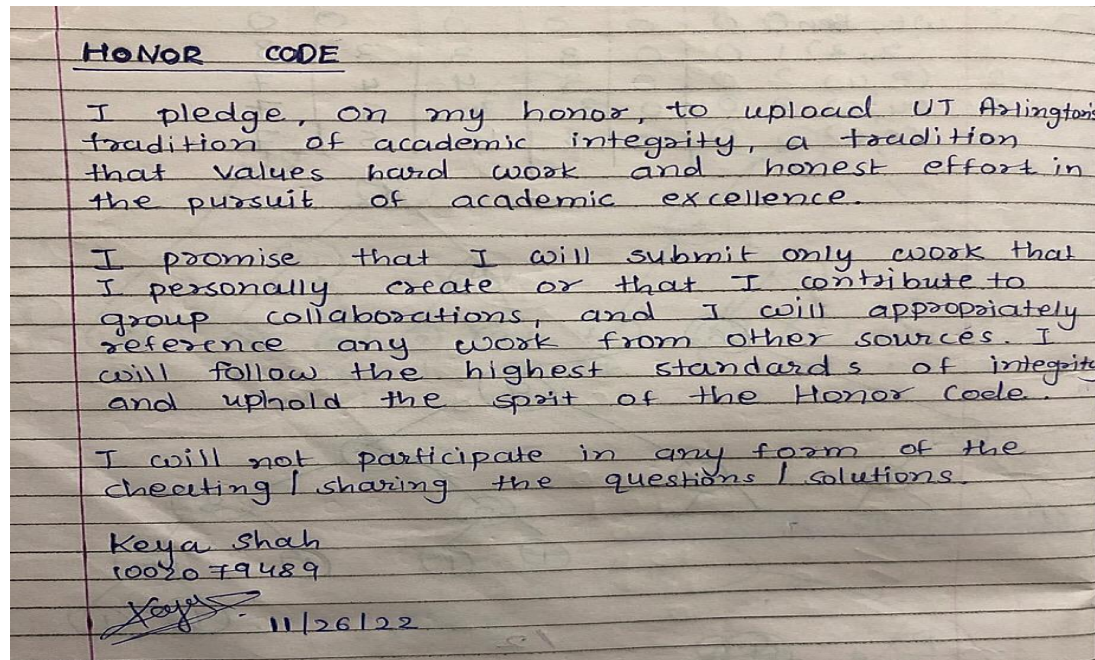 HONOR CODE
I pledge, on my honor, to upload UT Arlington's
tradition of academic integrity, a tradition
that values hard work and honest effort in
the pursuit of academic excellence.
I promise that I will submit only work that
I personally create or that I contribute to
group collaborations, and I will appropriately
reference any work from other sources. I
will follow the highest standards of integrity
and uphold the sprit of the Honor Code.
I will not participate in any form of the
cheating / sharing the questions / solutions.
Keya Shah
1002079489
11/26/22